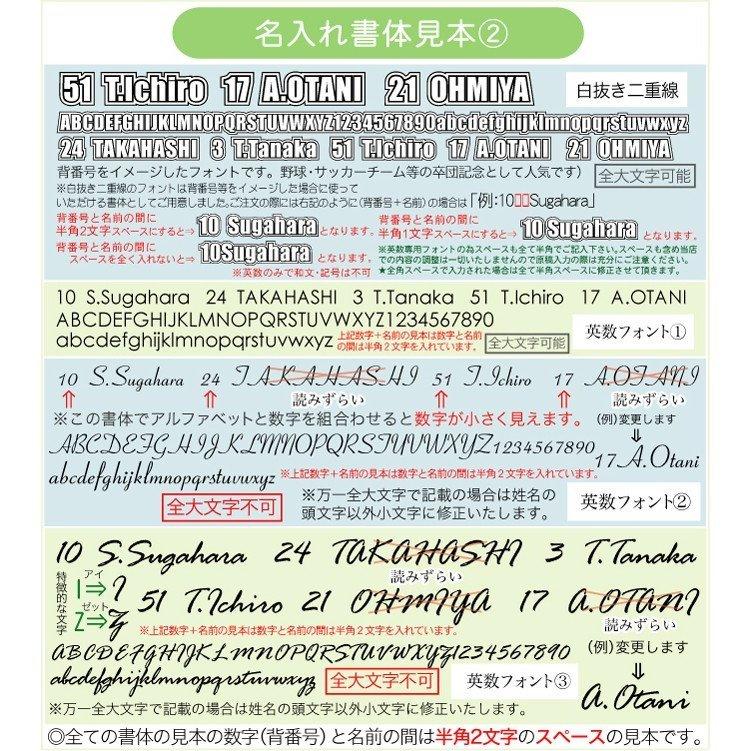 名入れ書体見本②
51 T.Ichiro 17 A.OTANI 21 OHMIYA
白抜き二重線
ABCDEFGHIJKLMNOPQRSTUVWXYZ1234567890abcdefghijklmnopqrstuvwxyz
24 TAKAHASHI 3 T.Tanaka 51 T.Ichiro 17 A.OTANI 21 OHMIYA
背番号をイメージしたフォントです。野球・サッカーチーム等の卒団記念として人気です)
全大文字可能
※白抜き二重線のフォントは背番号等をイメージした場合に使って
いただける書体としてご用意しました。ご注文の際には右記のように(背番号+名前)の場合は「例:10□□Sugahara」
背番号と名前の間に
半角2文字スペースにすると⇒ 10 Sugahara となります。
背番号と名前の間に
半角1文字スペースにすると⇒ 10 Sugahara となります。
背番号と名前の間に
スペースを全く入れないと⇒ 10Sugahara となります。
※英数のみで和文・記号は不可
※英数専用フォントの為スペースも全て半角でご記入下さい。スペースも含め当店
での内容の調整は一切いたしませんので原稿入力の際は充分にご注意ください。
★全角スペースで入力された場合は全て半角スペースに修正させて頂きます。
10 S.Sugahara 24 TAKAHASHI 3 T.Tanaka 51 T.Ichiro 17 A.OTANI
ABCDEFGHIJKLMNOPQRSTUVWXYZ1234567890
abcdefghijklmnopqrstuvwxyz
上記数字+名前の見本は数字と名前
の間は半角2文字を入れています。
全大文字可能
英数フォント①
10 S.Sugahara 24 TAKAHASHI 51 T.Ichiro 17 A.OTANI
⇑ ⇑ 読みずらい ⇑ ⇑ 読みずらい
※この書体でアルファベットと数字を組合わせると数字が小さく見えます。
(例)変更します
⇓
ABCDEFGHIJKLMNOPQRSTUVWXYZ1234567890
17 A.Otani
abcdefghijklmnopqrstuvwxyz
※上記数字+名前の見本は数字と名前の間は半角2文字を入れています。
全大文字不可
※万一全大文字で記載の場合は姓名の
頭文字以外小文字に修正いたします。
英数フォント②
10 S.Sugahara 24 TAKAHASHI 3 T.Tanaka
読みずらい
特徴的な文字
アイ
I⇒I
ゼット
Z⇒Z
51 T.Ichiro 21 OHMIYA 17 A.OTANI
読みずらい 読みずらい
※上記数字+名前の見本は数字と名前の間は半角2文字を入れています。
(例)変更します
⇓
A.Otani
ABCDEFGHIJKLMNOPQRSTUVWXYZ1234567890
abcdefghijklmnopqrstuvwxyz
全大文字不可
英数フォント③
※万一全大文字で記載の場合は姓名の頭文字以外小文字に修正いたします。
◎全ての書体の見本の数字(背番号)と名前の間は半角2文字のスペースの見本です。